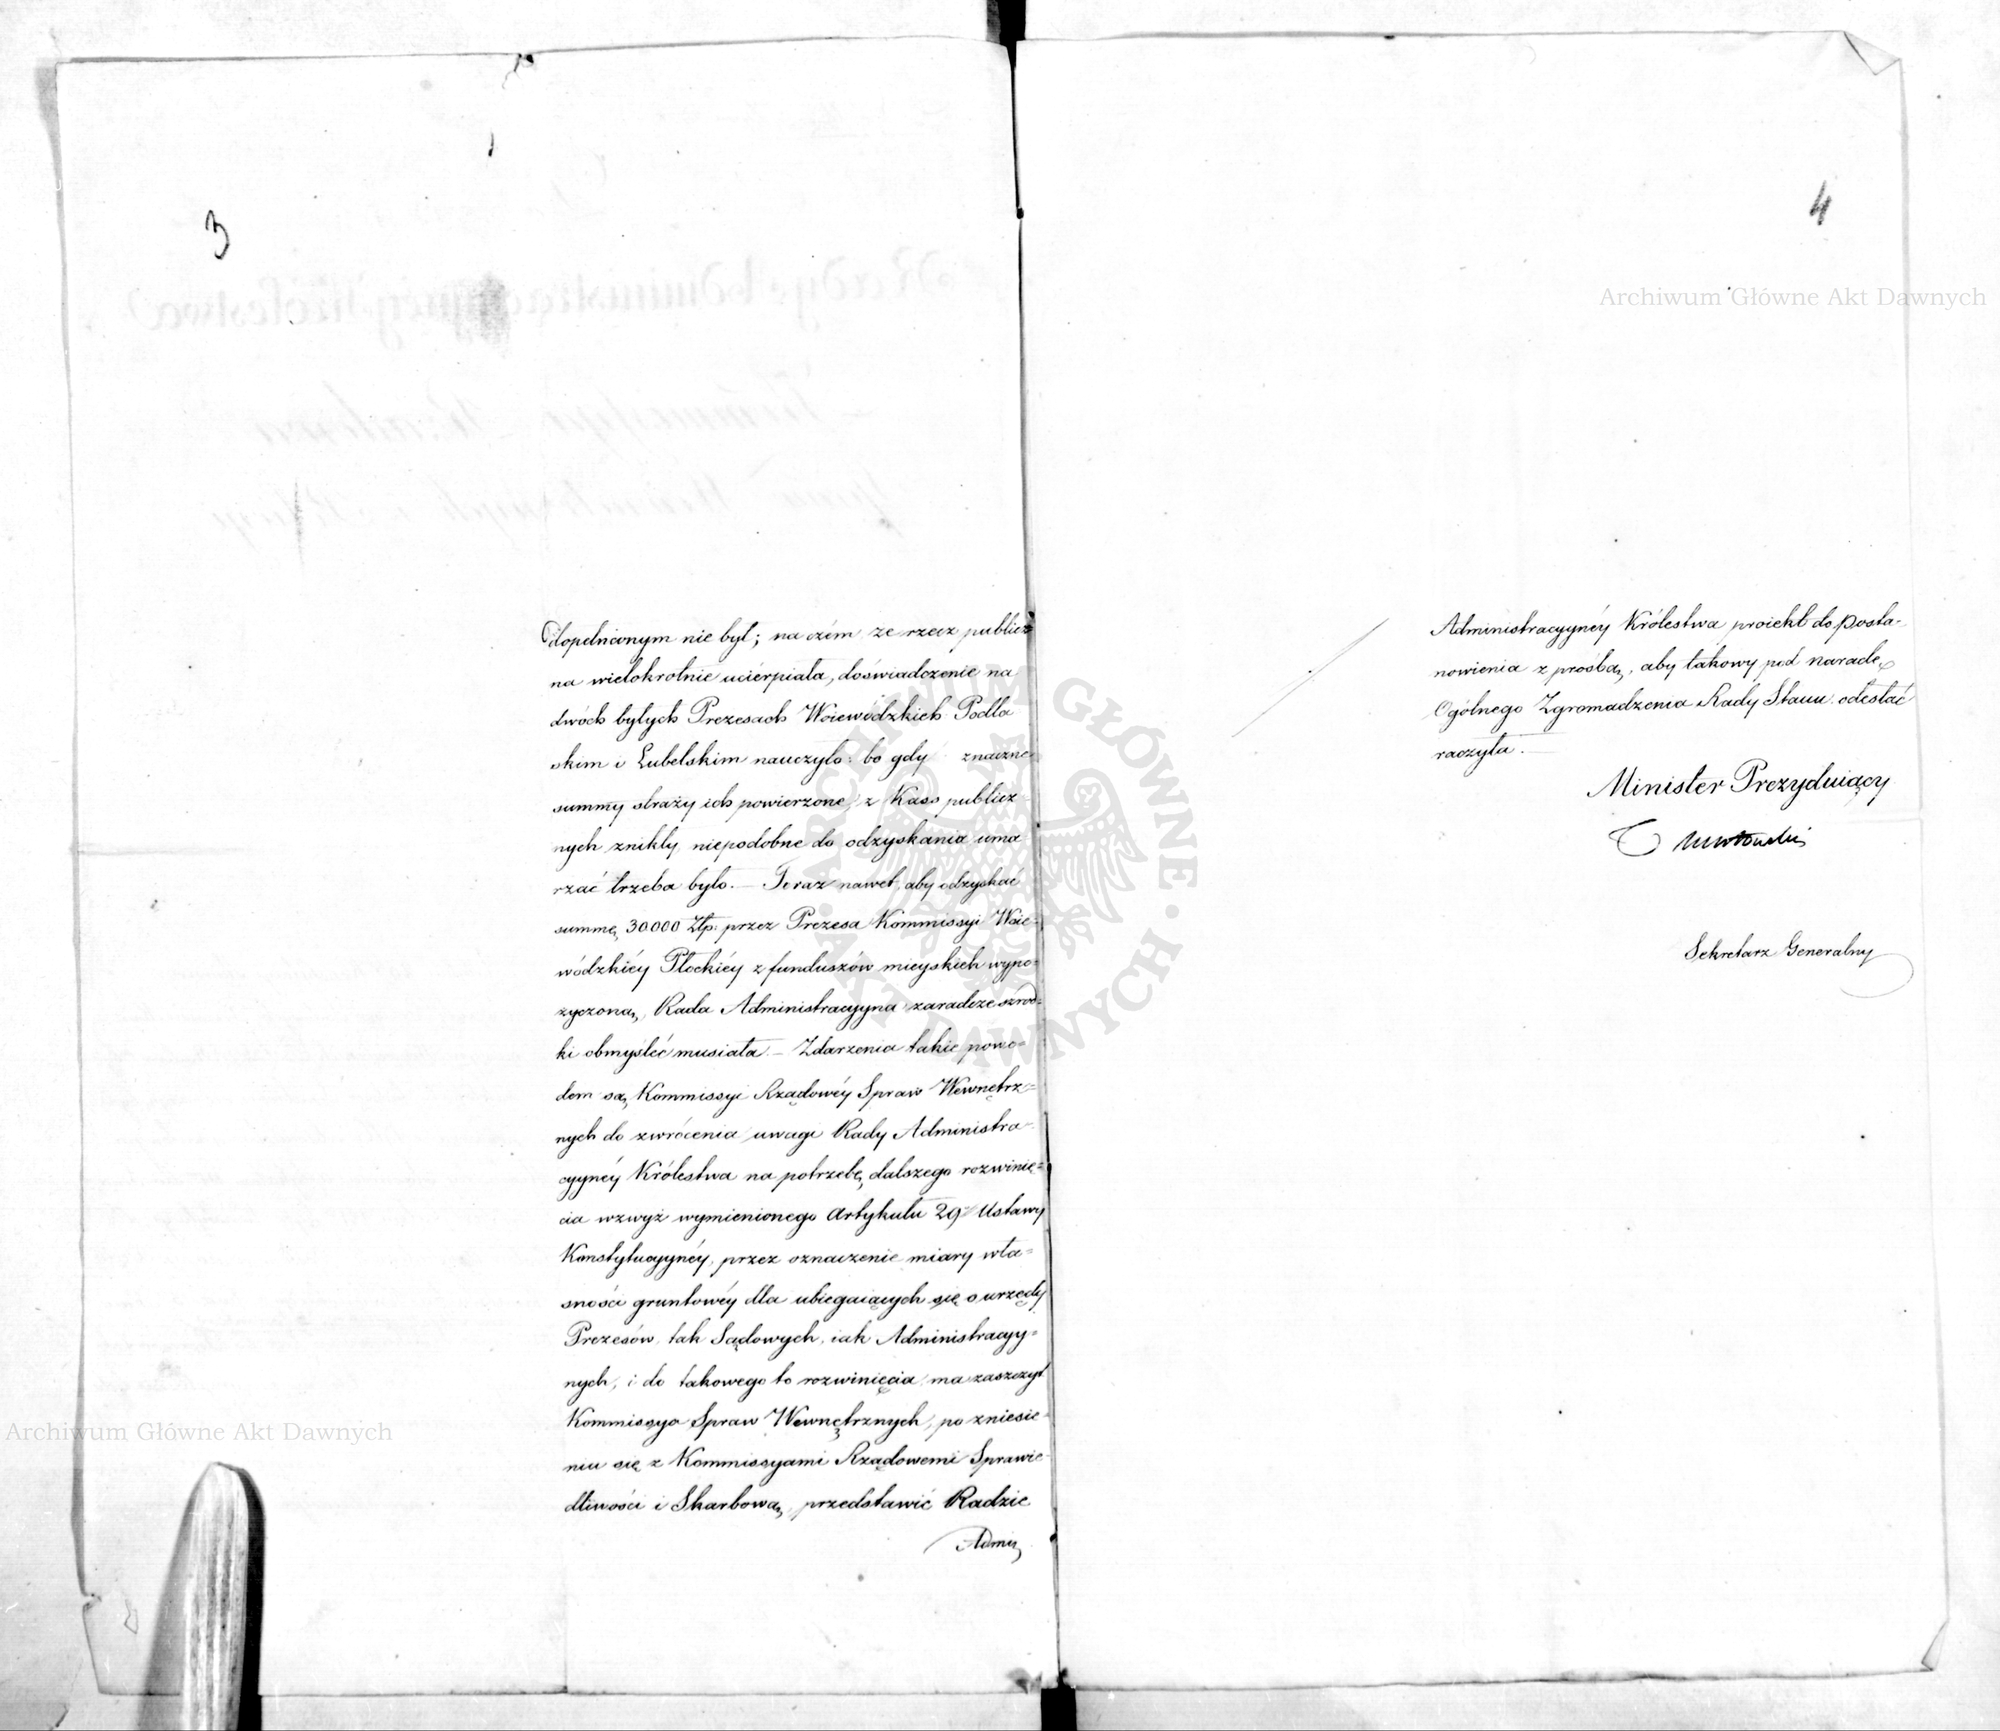 3
dopełnionym nie był; na czém że rzecz publicz=
na wielokrotnie ucierpiała, doświadczenie na
dwóch byłych Prezesach Woiewódzkich Podla
skim i Lubelskim nauczyło: bo gdy znaczne
summy straży ich powierzone, z Kass publicz
nych znikły, niepodobne do odzyskania uma
rzać trzeba było. — Teraz nawet, aby odzyskać
summę 30000 Złp: przez Prezesa Kommissyi Woie=
wódzkiéy Płockiéy z funduszów mieyskich wypo=
życzoną, Rada Administracyyna zaradcze szrod=
ki obmyśleć musiała. — Zdarzenia takie powo=
dem są, Kommissyi Rządowéy Spraw Wewnętrz=
nych do zwrócenia uwagi Rady Administra
cyynéy Królestwa na potrzebę dalszego rozwinię=
cia wzwyż wymienionego Artykułu 29 Ustawy
Konstytucyynéy, przez oznaczenie miary wła=
sności gruntowéy dla ubiegaiących się o urzędy
Prezesów, tak Sądowych, iak Administracyy=
nych, i do takowego to rozwinięcia ma zaszczyt
Kommissya Spraw Wewnętrznych, po zniesie=
niu się z Kommissyami Rządowemi Sprawie
dliwości i Skarbową, przedstawić Radzie
Admi
4
Administracyynéy Królestwa proiekt do posta-
nowienia z prośbą, aby takowy pod naradę
Ogólnego Zgromadzenia Rady Stanu odesłać
raczyła. —
Minister Prezyduiący
Sekretarz Generalny
Archiwum Główne Akt Dawnych
Archiwum Główne Akt Dawnych
ARCHIWUM GŁÓWNE AKT DAWNYCH